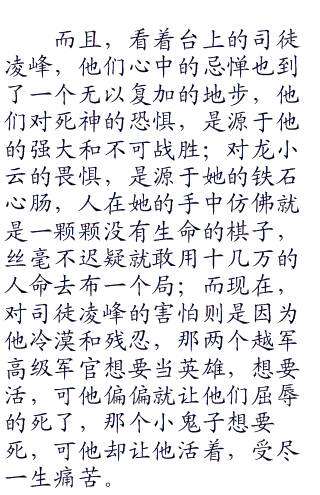 而且，看着台上的司徒
凌峰，他们心中的忌惮也到
了一个无以复加的地步，他
们对死神的恐惧，是源于他
的强大和不可战胜；对龙小
云的畏惧，是源于她的铁石
心肠，人在她的手中仿佛就
是一颗颗没有生命的棋子，
丝毫不迟疑就敢用十几万的
人命去布一个局；而现在，
对司徒凌峰的害怕则是因为
他冷漠和残忍，那两个越军
高级军官想要当英雄，想要
活，可他偏偏就让他们屈辱
的死了，那个小鬼子想要
死，可他却让他活着，受尽
一生痛苦。